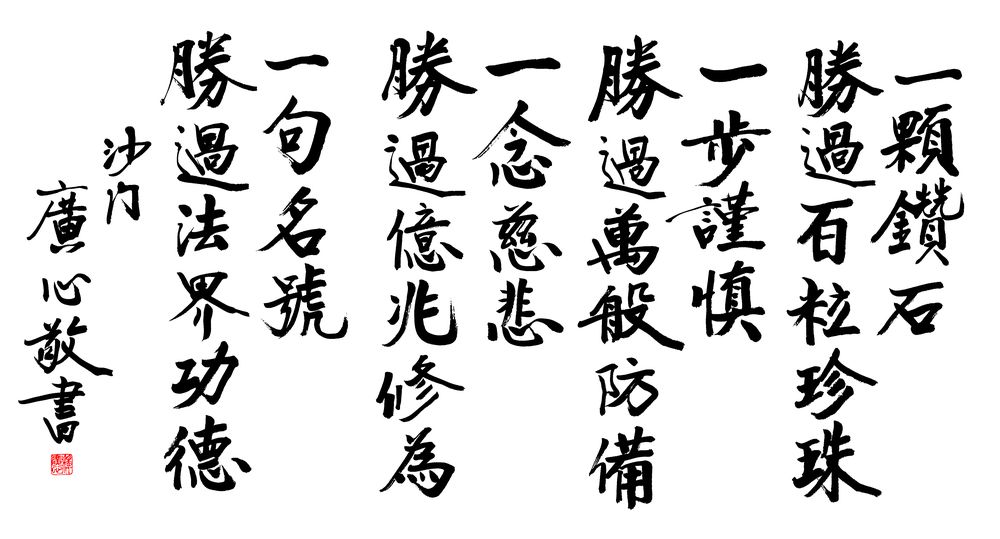 一顆鑽石
勝過百粒珍珠
一步謹慎
勝過萬般防備
一念慈悲
勝過億兆修為
一句名號
勝過法界功德
沙门
廣心敬書